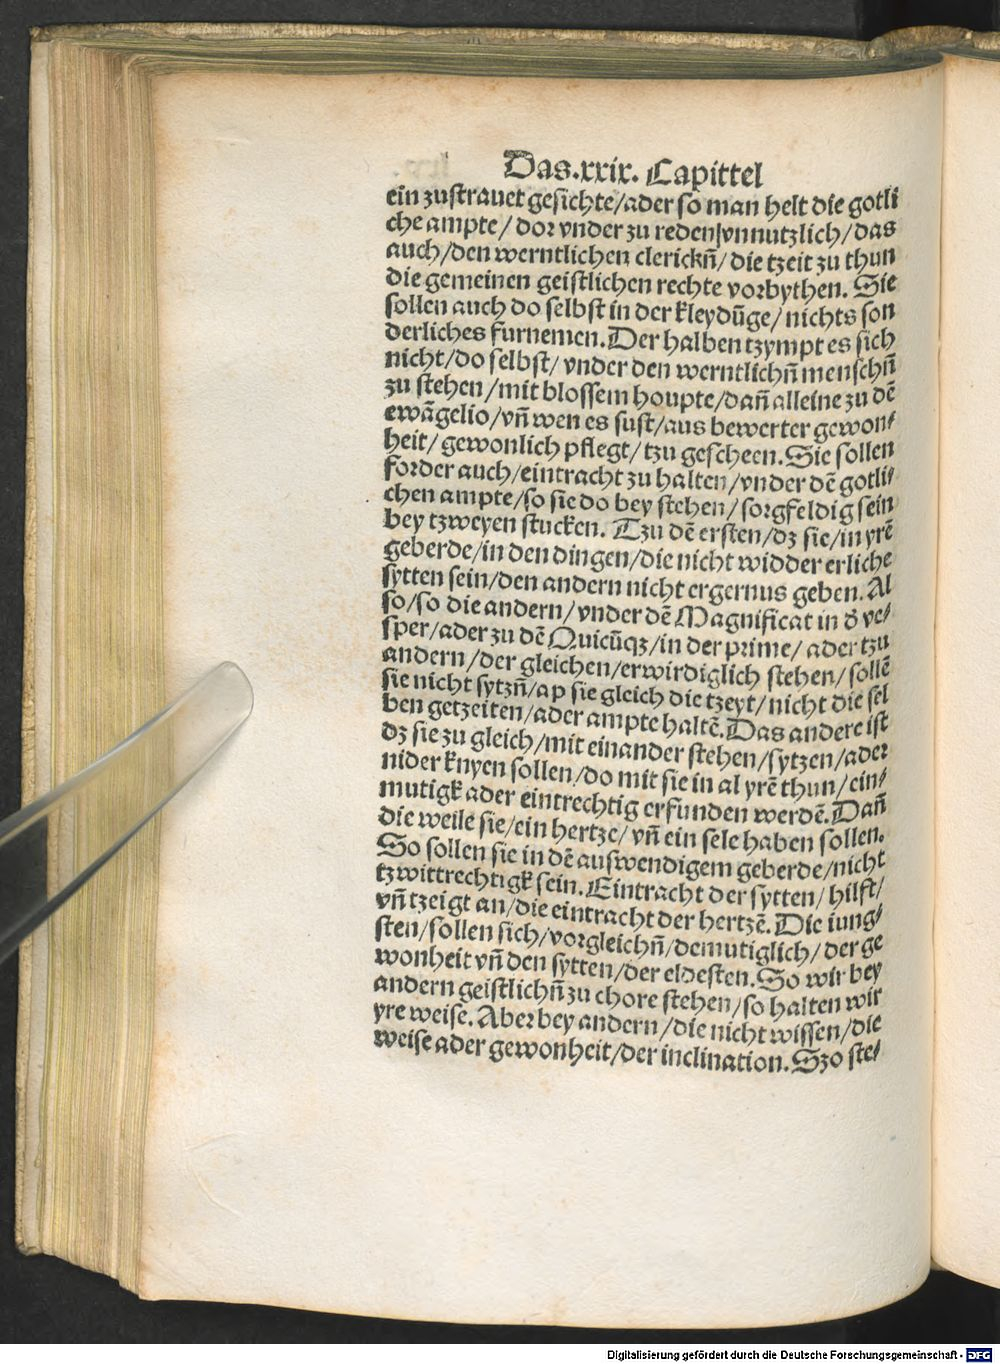 Das.xxix. Capittel
ein zustrauet gesichte/ader so man helt die gotli
che ampte/ dor vnder zu reden|vnnutzlich/das
auch/den werntlichen clerickn̄/ die tzeit zu thun
die gemeinen geistlichen rechte vorbythen. Sie
sollen auch do selbst in der kleydūge/ nichts son
derliches furnemen. Der halben tzympt es sich
nicht/do selbst/ vnder den werntlichn̄ menschn̄
zu stehen/mit blossem houpte/dan̄ alleine zu dē
ewāgelio/vn̄ wen es sust/aus bewerter gewon⸗
heit/ gewonlich pflegt/ tzu gescheen. Sie sollen
forder auch/eintracht zu halten/vnder dē gotli⸗
chen ampte/so sie do bey stehen/ sorgfeldig sein
bey tzweyen stucken. Tzu dē ersten/dz sie/in yrē
geberde/in den dingen/die nicht widder erliche
sytten sein/den andern nicht ergernus geben. Al
so/so die andern/ vnder dē Magnificat in d̄ ve⸗
sper/ader zu dē Quicūqz/in der prime/ ader tzu
andern/der gleichen/erwirdiglich stehen/ sollē
sie nicht sytzn̄/ap sie gleich die tzeyt/ nicht die sel
ben getzeiten/ader ampte haltē. Das andere ist
dz sie zu gleich/mit einander stehen/sytzen/ader
nider knyen sollen/do mit sie in al yrē thun/ein⸗
mutigk ader eintrechtig erfunden werdē. Dan̄
die weile sie/ein hertze/ vn̄ ein sele haben sollen.
So sollen sie in dē auswendigem geberde/nicht
tzwittrechtigk sein. Eintracht der sytten/ hilft/
vn̄ tzeigt an/die eintracht der hertzē. Die iung⸗
sten/sollen sich/vorgleichn̄/demutiglich/ der ge
wonheit vn̄ den sytten/der eldesten. So wir bey
andern geistlichn̄ zu chore stehen/so halten wir
yre weise. Aber bey andern/die nicht wissen/die
weise ader gewonheit/der inclination. Szo ste⸗
Digitalisierung gefördert durch die Deutsche Forschungsgemeinschaft - DFG